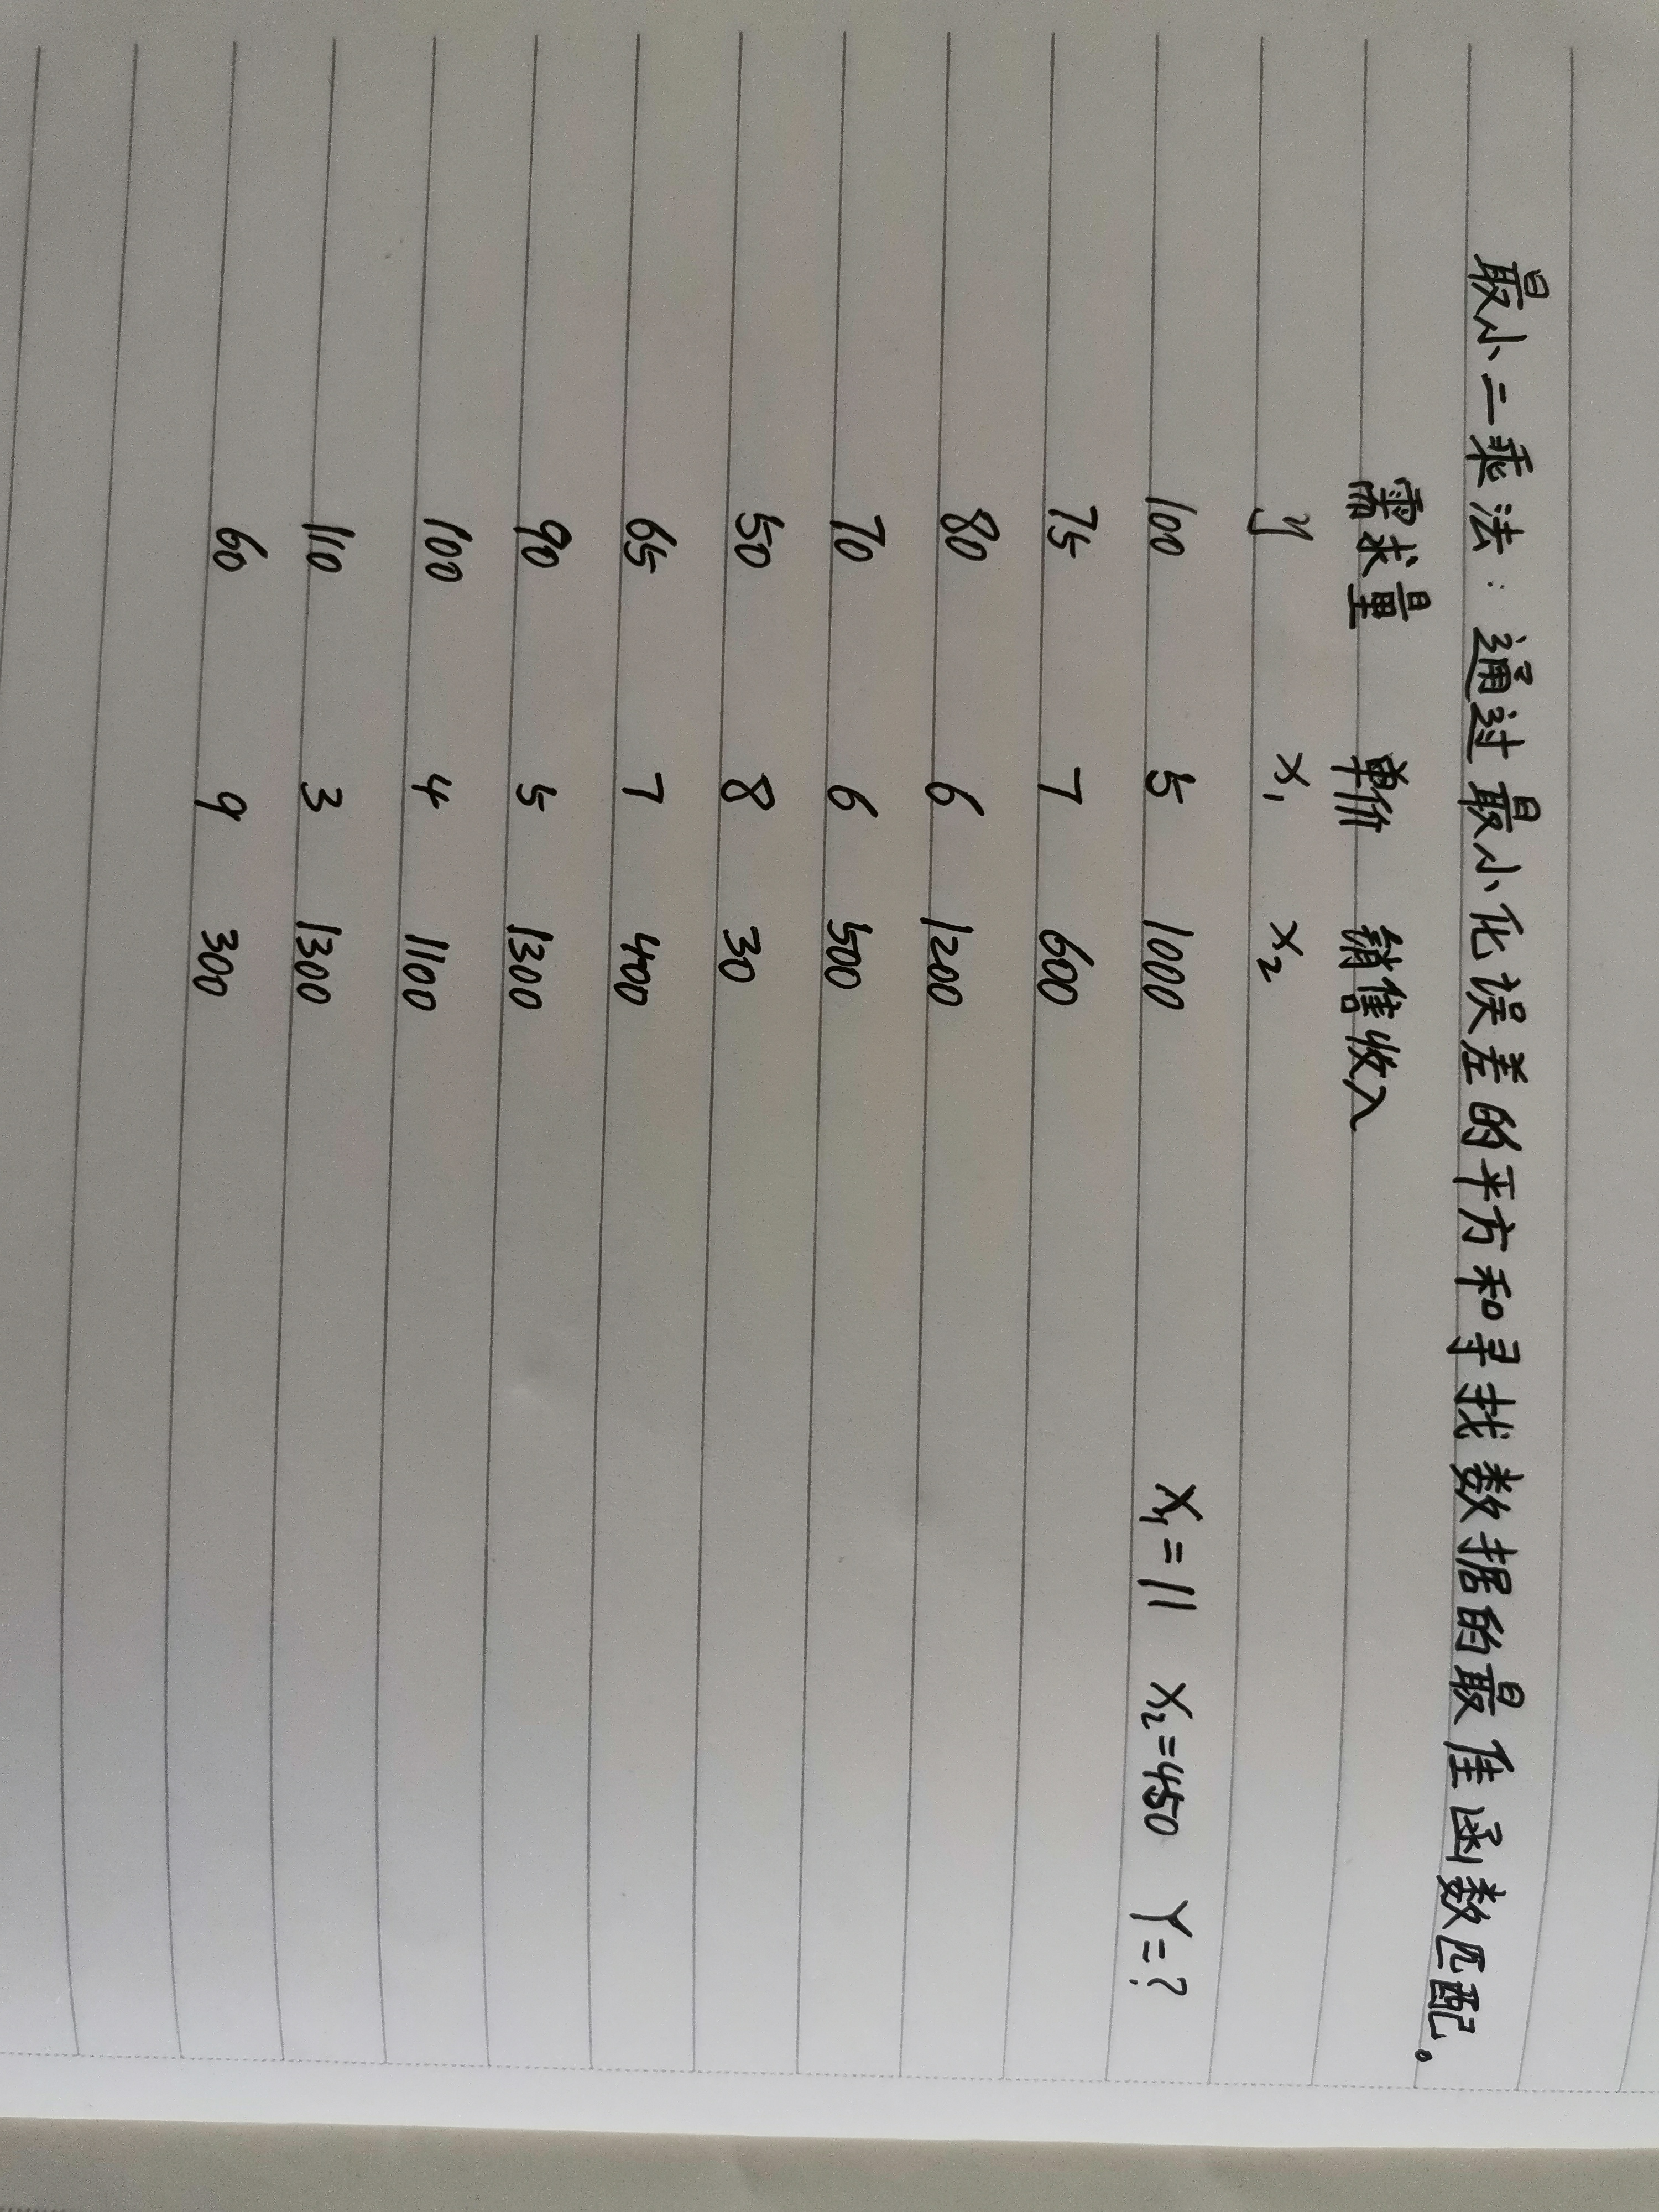 最小二乘法：通过最小化误差的平方和寻找数据的最佳函数匹配。
需求量 单价 销售收入
y x₁ x₂
100 5 1000 X₁=11 X₂=450 Y=?
75 7 600
80 6 1200
70 6 500
50 8 30
65 7 400
90 5 1300
100 4 1100
110 3 1300
60 9 300